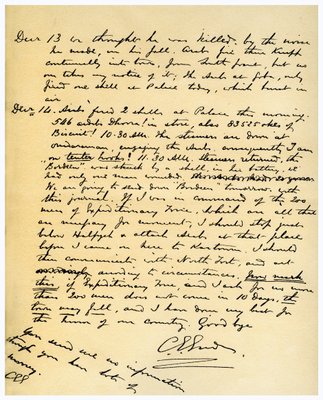 Decr 13 we thought he was killed, by the noise
he made, in his fall. Arabs fire their Krupps
continually into town, from South front, but no
one takes any notice of it, the Arabs at Goba, only
fired one shell at Palace today, which burst in
air.
Decr 14. Arabs fired 2 shells at Palace this morning,
546 ardebs Dhoora! in store, also 83525 okes of
Biscuit! 10.30 AM. The steamers are down at
Omdurman, engaging the Arabs. Consequently I am
on tenter hooks! 11.30 AM. Steamers returned, the
"Bordeen" was struck by a shell in her battery, we
had only one man wounded.
We are going to send down "Bordeen" tomorrow with
this journal. If I was in command of the 200
men of Expeditionary Force, which are all that
are necessary for movement, I should stop just
below Halfyeh & attack Arabs at that place
before I came on here to Kartoum. I should
then communicate with North Fort, and act
according to circumstances. Now mark
this, if Expeditionary Force, and I ask for no more
than 200 men does not come in 10 days, the
town may fall, and I have done my best for
the honor of our country. Good bye
C G Gordon
You send me no information
though you have lots of
money.
CGG